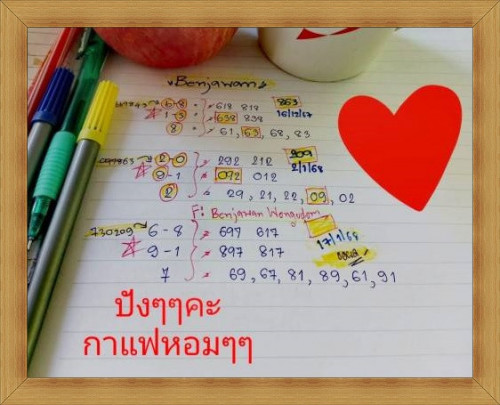 Benjawan
6-8 618 819 863
1-3 638 838 16/12/67
8 61, 63, 68, 83
2-0 292 212 209
9-1 092 012 2/1/68
2 29, 21, 22, 09, 02
F: Benjawan Wongudom
730209 6-8 697 617
9-1 897 817 17/1/68
7 69, 67, 81, 89, 61, 91
ปังๆๆคะ
กาแฟหอมๆๆ